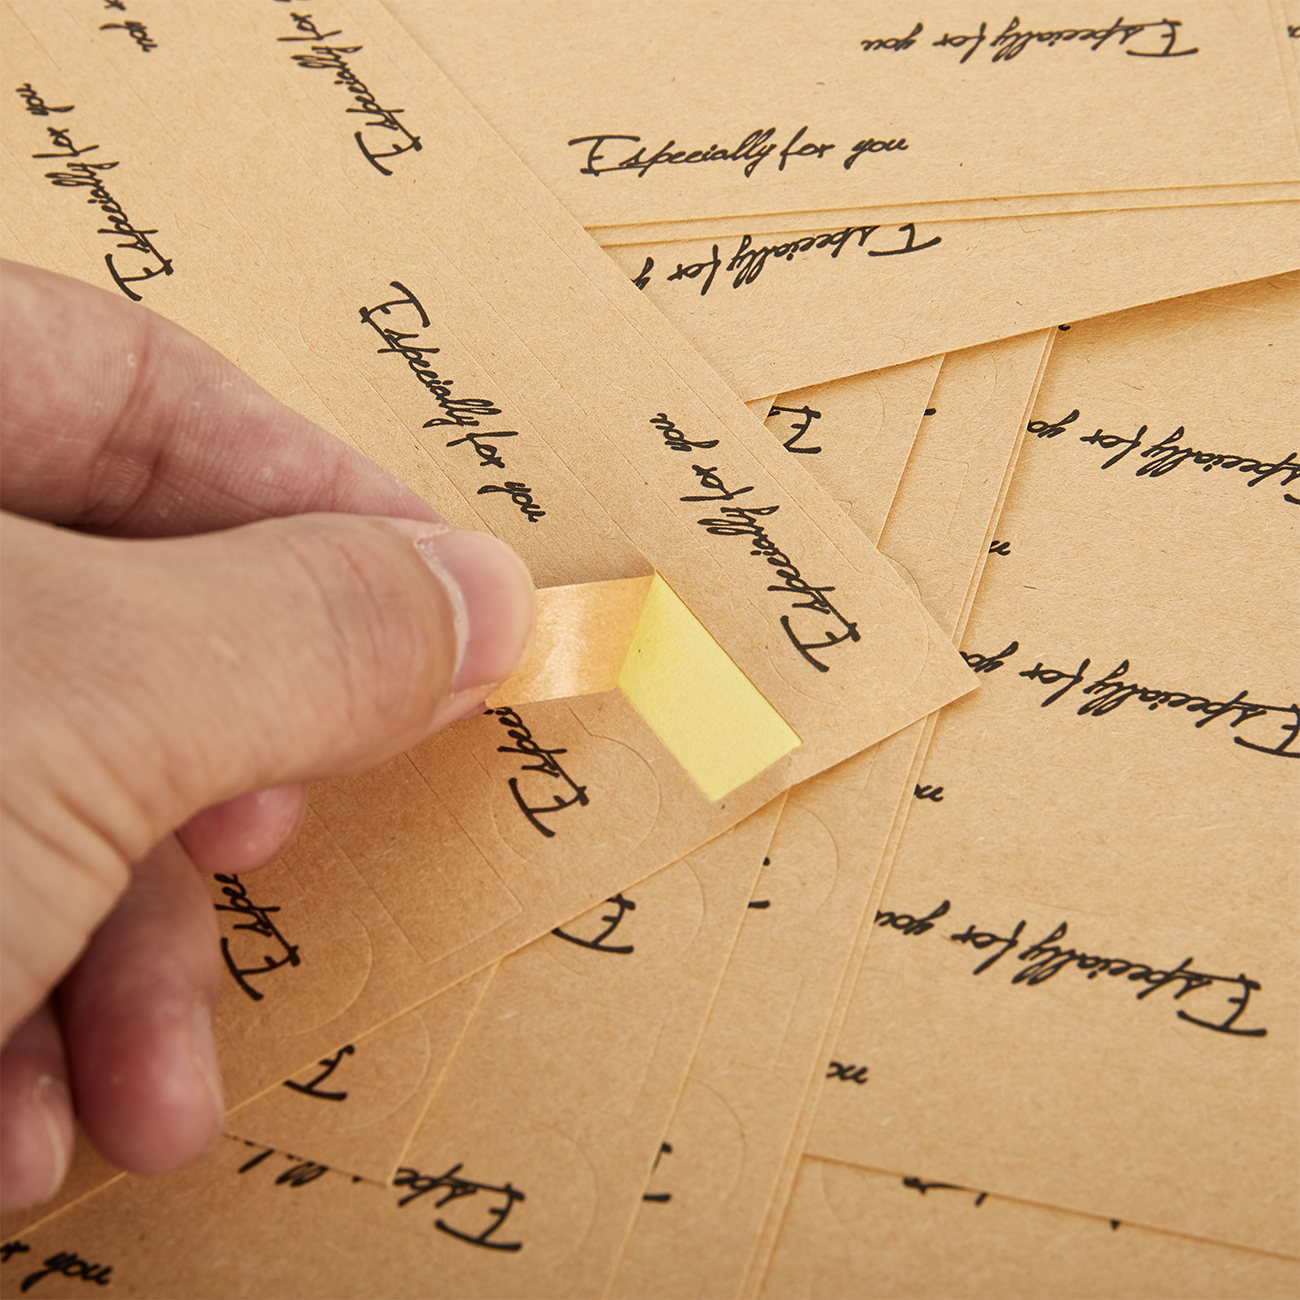 for you
Especially for you
Especially for you
Especially for you
Especially for you
Especially for you
Especially for
Especially for you
Especially for you
Especially for you
Especially for you
Especially for you
you